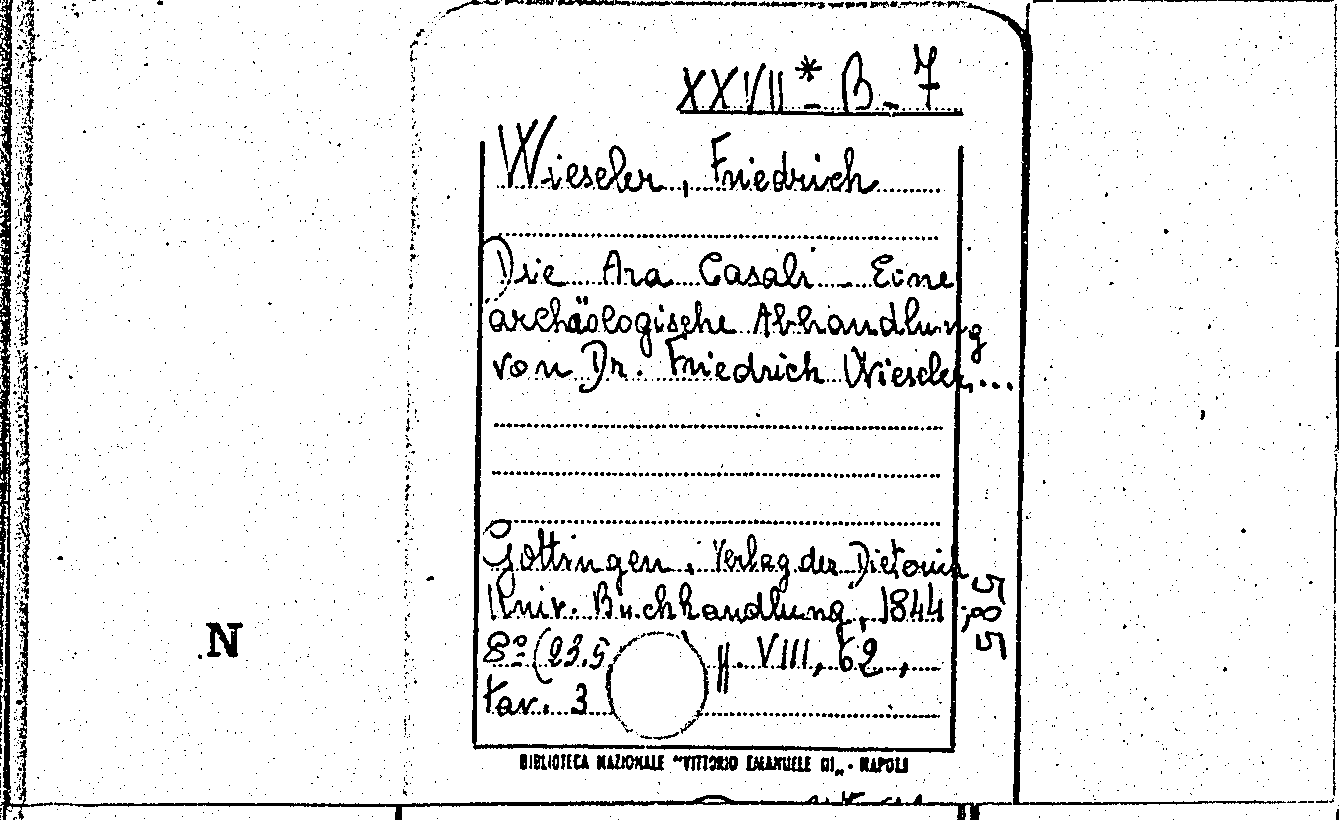 XXVII* - B - 7
Wieseler, Friedrich
Die Ara Casali - Eine
archäologische Abhandlung
von Dr. Friedrich Wieseler...
Gottingen, Verlag der Dieterich
Univ. Buchhandlung, 1844
8º (23.5 pp. VIII, 62,
tav. 3
585
N
BIBLIOTECA NAZIONALE "VITTORIO EMANUELE III" - NAPOLI